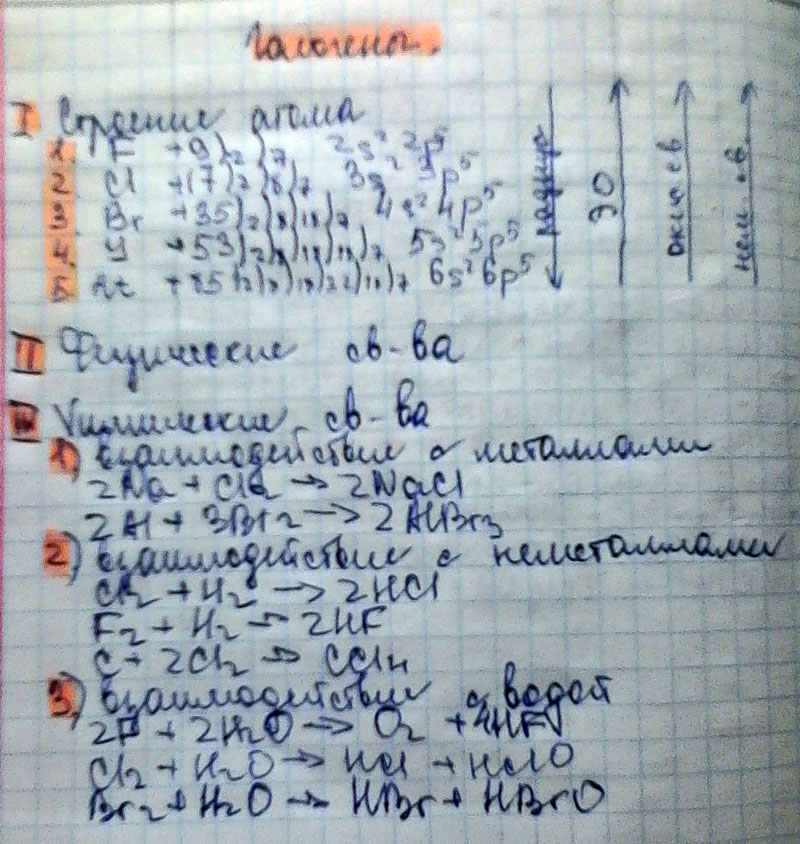 Галогены.
I Строение атома
1. F +9)2)7 2s² 2p⁵
2 Cl +17)2)8)7 3s² 3p⁵
3. Br +35)2)8)18)7 4s² 4p⁵
4. У +53)2)8)18)18)7 5s² 5p⁵
5. At +85)2)8)18)32)18)7 6s² 6p⁵
радиус
ЭО
окисл св
нем. св.
II Физические св-ва
III Химические св-ва
1) взаимодействие с металлами
2Na + Cl2 → 2NaCl
2Al + 3Br2 → 2AlBr3
2) взаимодействие с неметаллами
Cl2 + H2 → 2HCl
F2 + H2 → 2HF
C + 2Cl2 → CCl4
3) взаимодействие с водой
2F + 2H2O → O2 + 4HF
Cl2 + H2O → HCl + HClO
Br2 + H2O → HBr + HBrO